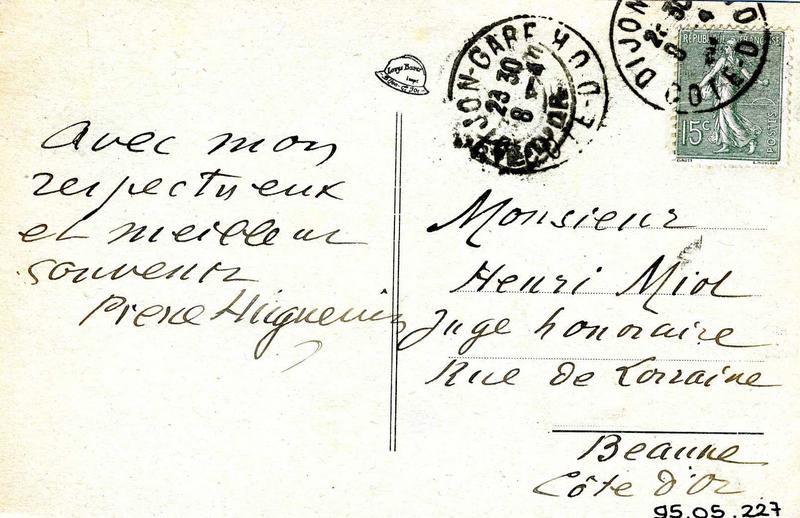 Avec mon
respectueux
et meilleur
souvenir
Pierre Huguenin
Monsieur
Henri Miot
Juge honoraire
Rue de Lorraine
Beaune
Côte d'Or
95.05.227
DIJON-GARE
CÔTE-D'OR
23 30
8
DIJON
COTE-D'OR
RÉPUBLIQUE FRANÇAISE
15c
POSTES